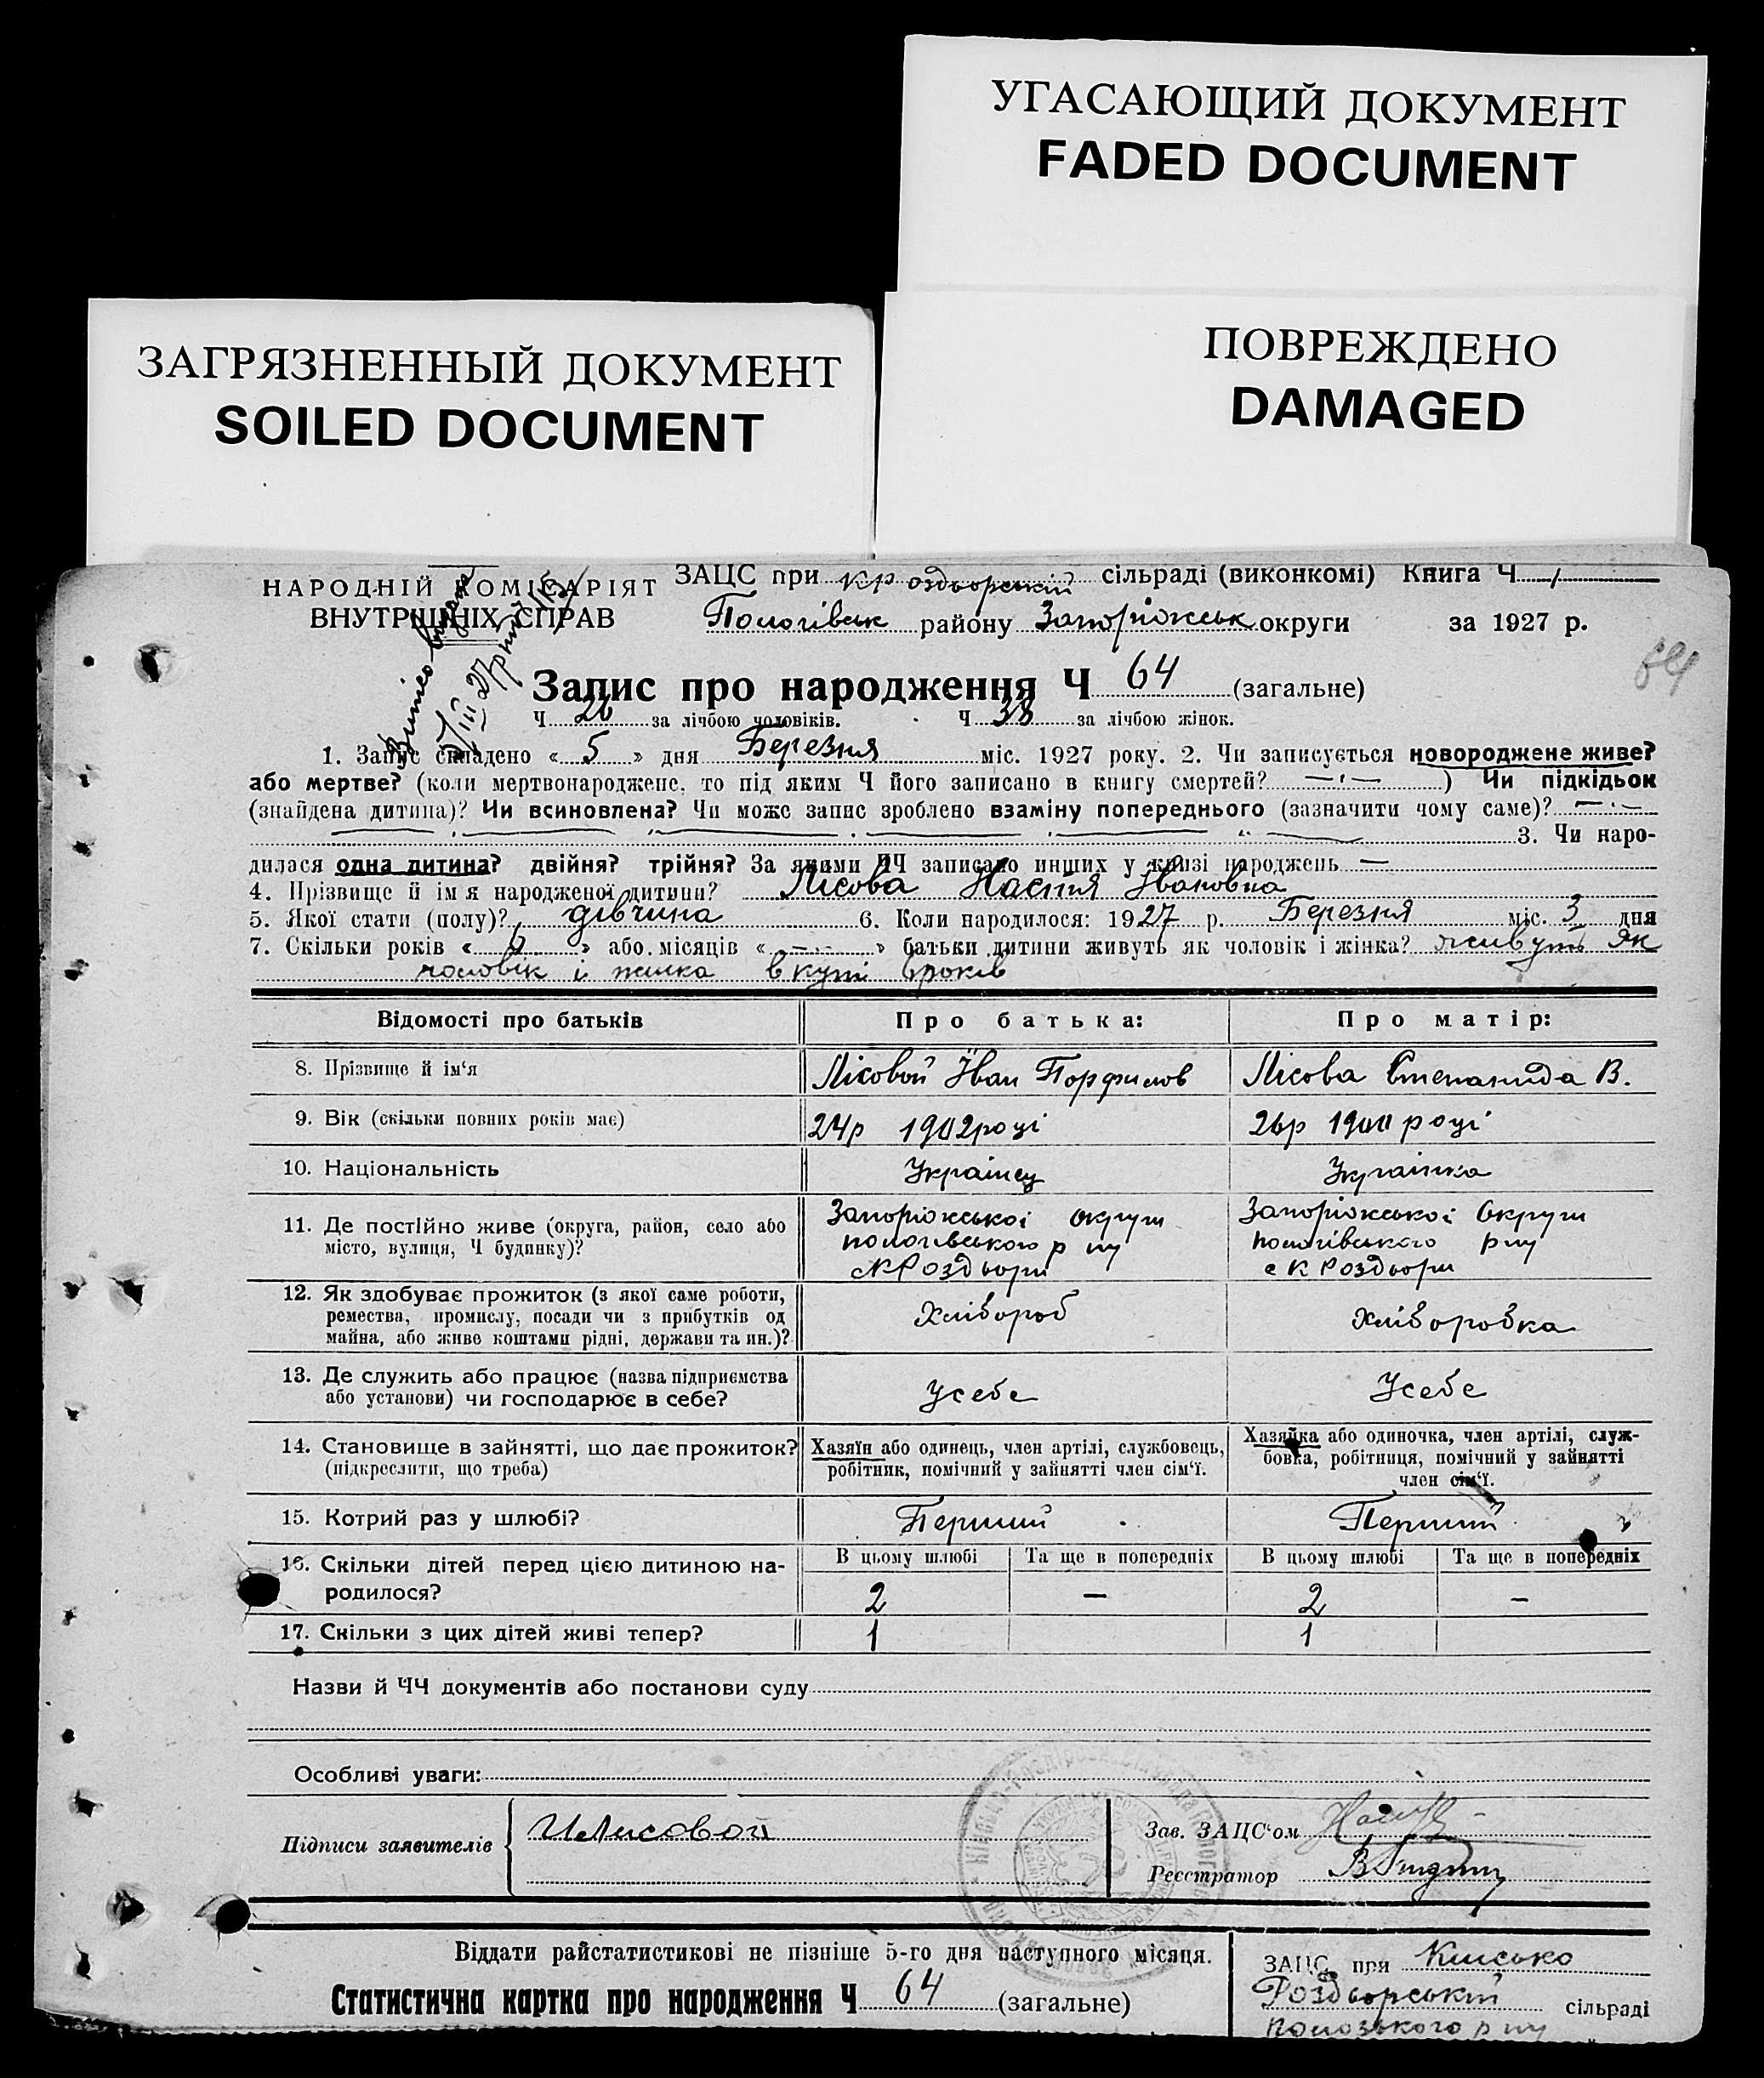 УГАСАЮЩИЙ ДОКУМЕНТ
FADED DOCUMENT
ПОВРЕЖДЕНО
DAMAGED
ЗАГРЯЗНЕННЫЙ ДОКУМЕНТ
SOILED DOCUMENT
НАРОДНІЙ КОМІСАРІЯТ
ВНУТРІШНІХ СПРАВ
ЗАЦС при Кр оздьорський сільраді (виконкомі) Книга Ч. 1
Пологівськ району Запоріжськ округи за 1927 р.
64
Запис про народження Ч 64 (загальне)
Ч 26 за лічбою чоловіків. Ч 38 за лічбою жінок.
1. Запис складено « 5 » дня Березня міс. 1927 року. 2. Чи записується новороджене живе?
або мертве? (коли мертвонароджене, то під яким Ч його записано в книгу смертей? —) Чи підкідьок
(знайдена дитина)? Чи всиновлена? Чи може запис зроблено взаміну попереднього (зазначити чому саме)? —
3. Чи наро-
дилася одна дитина? двійня? трійня? За якими ЧЧ записано инших у книзі народжень —
4. Прізвище й ім я народженої дитини? Лісова Настя Івановна
5. Якої стати (полу)? дівчина 6. Коли народилося: 1927 р. Березня міс. 3 дня
7. Скільки років « 6 » або місяців « — » батьки дитини живуть як чоловік і жінка? живуть як
чоловік і жинка вкупі 6 років
Відомості про батьків Про батька: Про матір:
8. Прізвище й ім'я Лісовой Іван Порфилов Лісова Степанида В.
9. Вік (скільки повних років має) 24р 1902 році 26р 1900 році
10. Національність Українец Українка
11. Де постійно живе (округа, район, село або Запоріжської округи Запоріжської Округи
місто, вулиця, Ч будинку)? пологівського р ну пологівського р ну
с К Роздьори с К Роздьори
12. Як здобуває прожиток (з якої саме роботи,
ремества, промислу, посади чи з прибутків од Хлібороб Хліборобка
майна, або живе коштами рідні, держави та ин.)?
13. Де служить або працює (назва підприємства
або установи) чи господарює в себе? Усебе Усебе
14. Становище в зайнятті, що дає прожиток? Хазяїн або одинець, член артілі, службовець, Хазяйка або одиночка, член артілі, служ-
(підкреслити, що треба) робітник, помічний у зайнятті член сім'ї. бовка, робітниця, помічний у зайнятті
член сім'ї.
15. Котрий раз у шлюбі? Перший Перший
16. Скільки дітей перед цією дитиною на- В цьому шлюбі Та ще в попередніх В цьому шлюбі Та ще в попередніх
родилося? 2 — 2 —
17. Скільки з цих дітей живі тепер? 1 1
Назви й ЧЧ документів або постанови суду
Особливі уваги:
Підписи заявителів И Лисовой Зав. ЗАЦС'ом
Реєстратор
Віддати райстатистикові не пізніше 5-го дня наступного місяця.
Статистична картка про народження Ч 64 (загальне)
ЗАЦС при Кинсько
Роздьорський сільраді